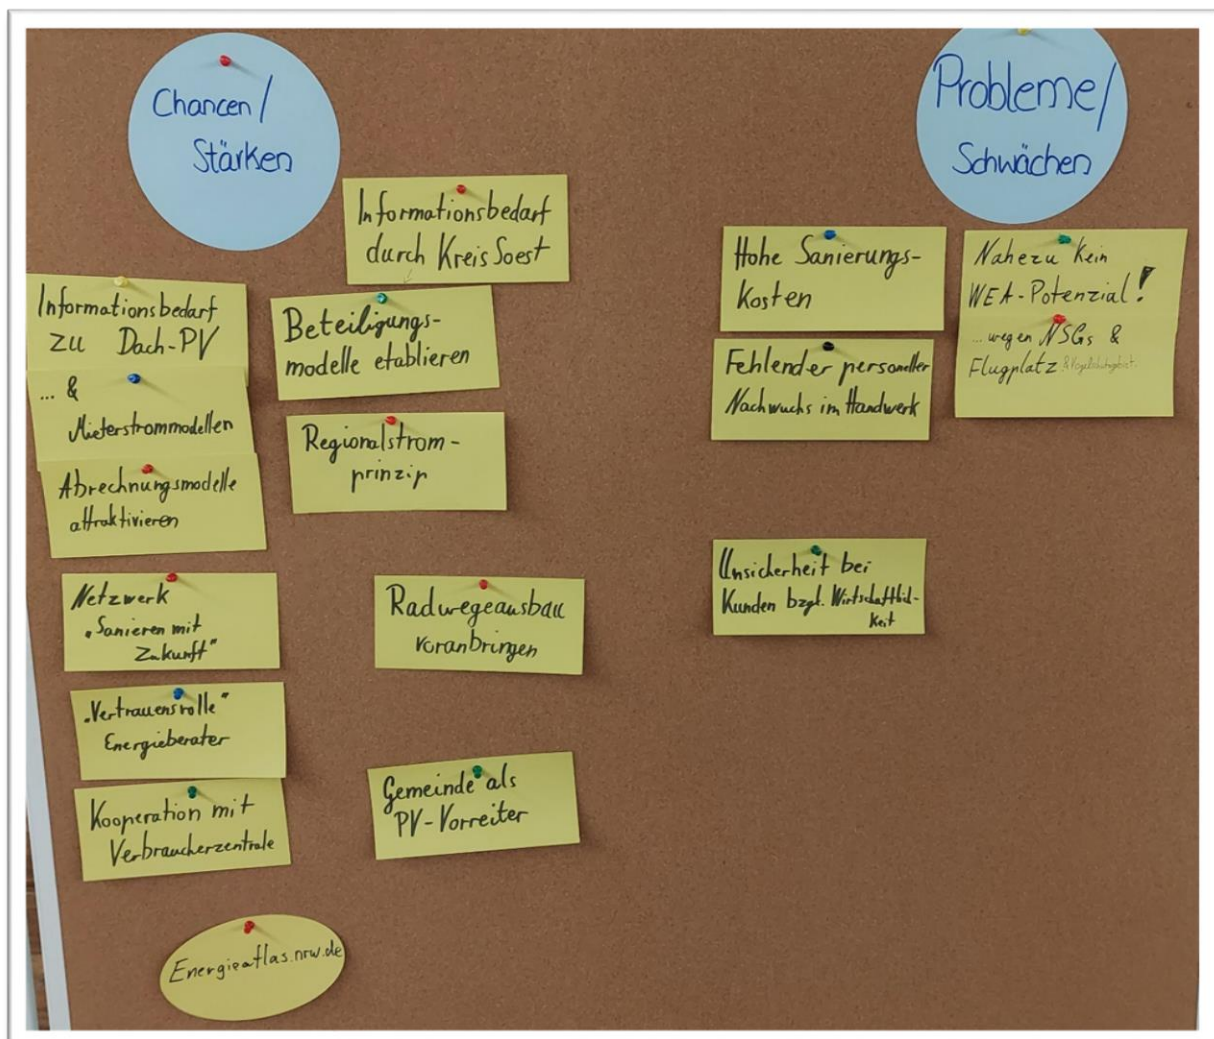 Chancen/
Stärken
Informationsbedarf
durch Kreis Soest
Informationsbedarf
zu Dach-PV
... &
Mieterstrommodellen
Abrechnungsmodelle
attraktivieren
Beteiligungs-
modelle etablieren
Regionalstrom-
prinzip
Netzwerk
„Sanieren mit
Zukunft"
„Vertrauensrolle"
Energieberater
Kooperation mit
Verbraucherzentrale
Radwegeausbau
voranbringen
Gemeinde als
PV-Vorreiter
Energieatlas.nrw.de
Probleme/
Schwächen
Hohe Sanierungs-
kosten
Fehlender personeller
Nachwuchs im Handwerk
Nahezu kein
WEA-Potenzial!
... wegen NSGs &
Flugplatz & Vogelschutzgebiet.
Unsicherheit bei
Kunden bzgl. Wirtschaftlich-
keit